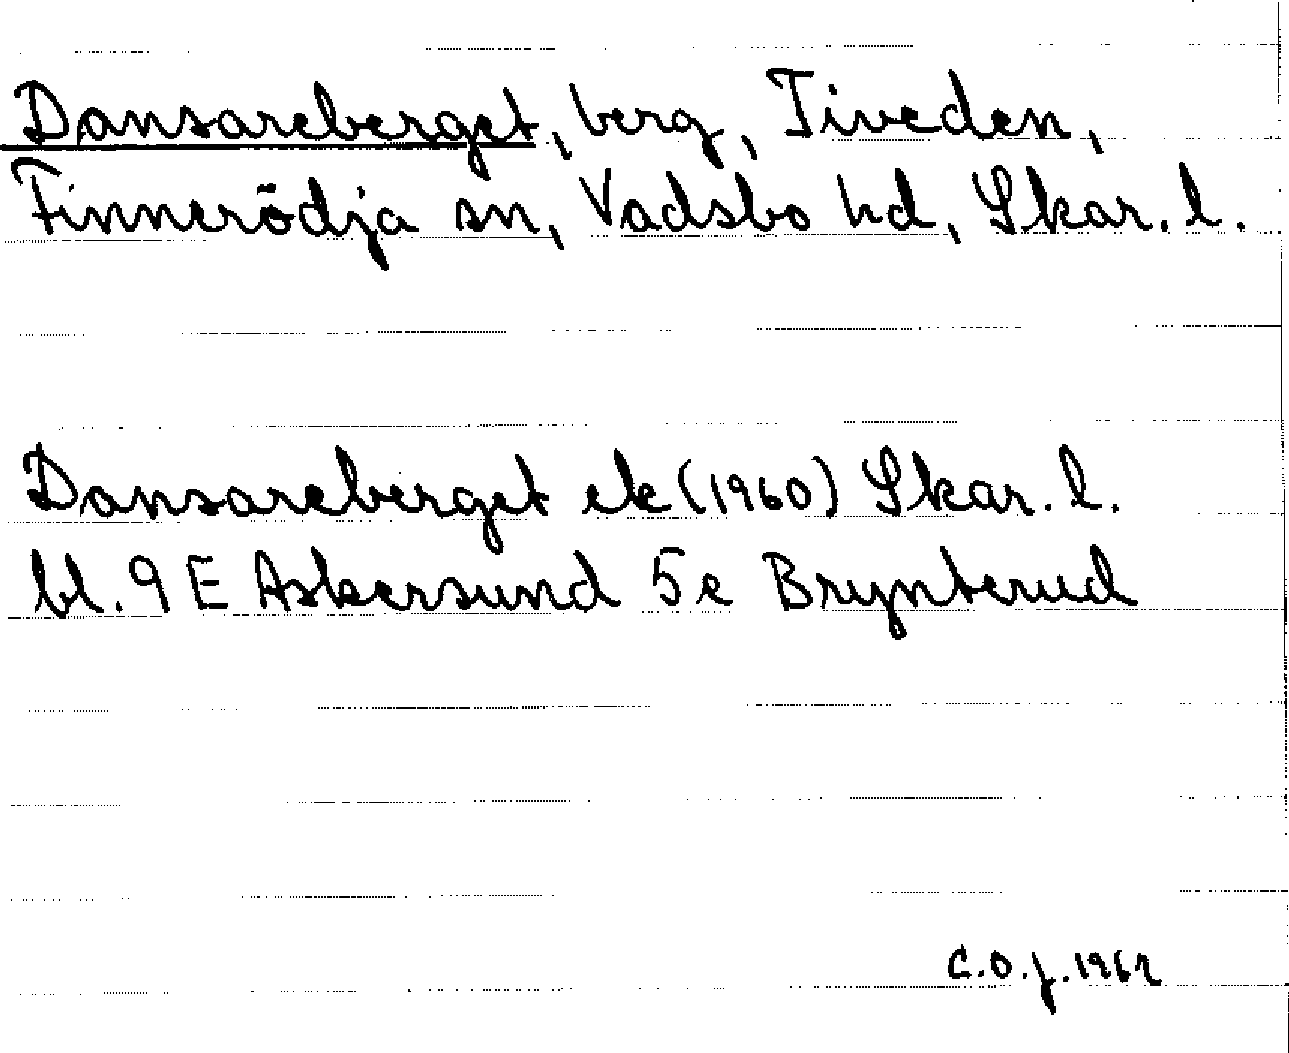 Dansareberget, berg, Tiveden,
Finnerödja sn, Vadsbo hd, Skar. l.
Dansareberget ek (1960) Skar. l.
bl. 9 E Askersund 5e Brynterud
C.O.J. 1962